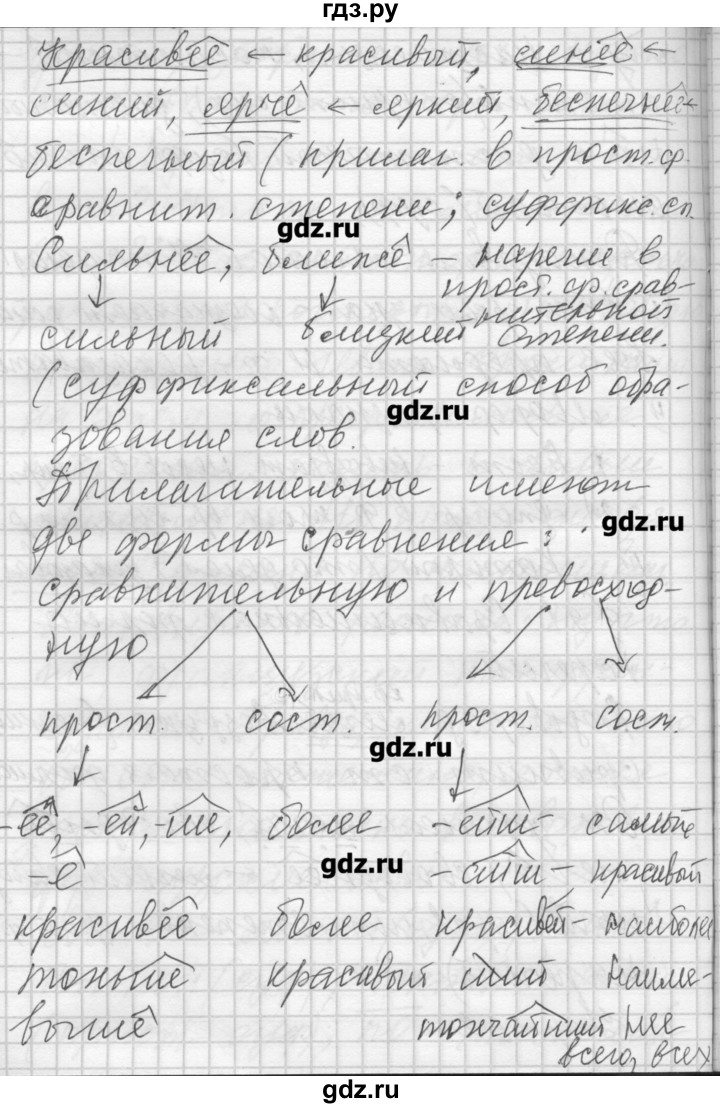 гдз.ру
Красивее ← красивый, синее ←
синий, ярче ← яркий, беспечнее ←
беспечный (прилаг. в прост. ф.
сравнит. степени; суффикс. сп.
gdz.ru
Сильнее, ближе – наречие в
прост. ф. срав-
нительной
сильный близкий степени.
(суффиксальный способ обра-
gdz.ru
зования слов.
Прилагательные имеют
gdz.ru
две формы сравнения:
сравнительную и превосход-
ную
прост. сост. прост. сост.
gdz.ru
-ее, -ей, -ше, более -ейш- самый
gdz.ru
-е -айш- красивый
красивее более красивей- наиболее
тоньше красивый ший наиме-
выше тончайший нее
всего, всех
gdz.ru